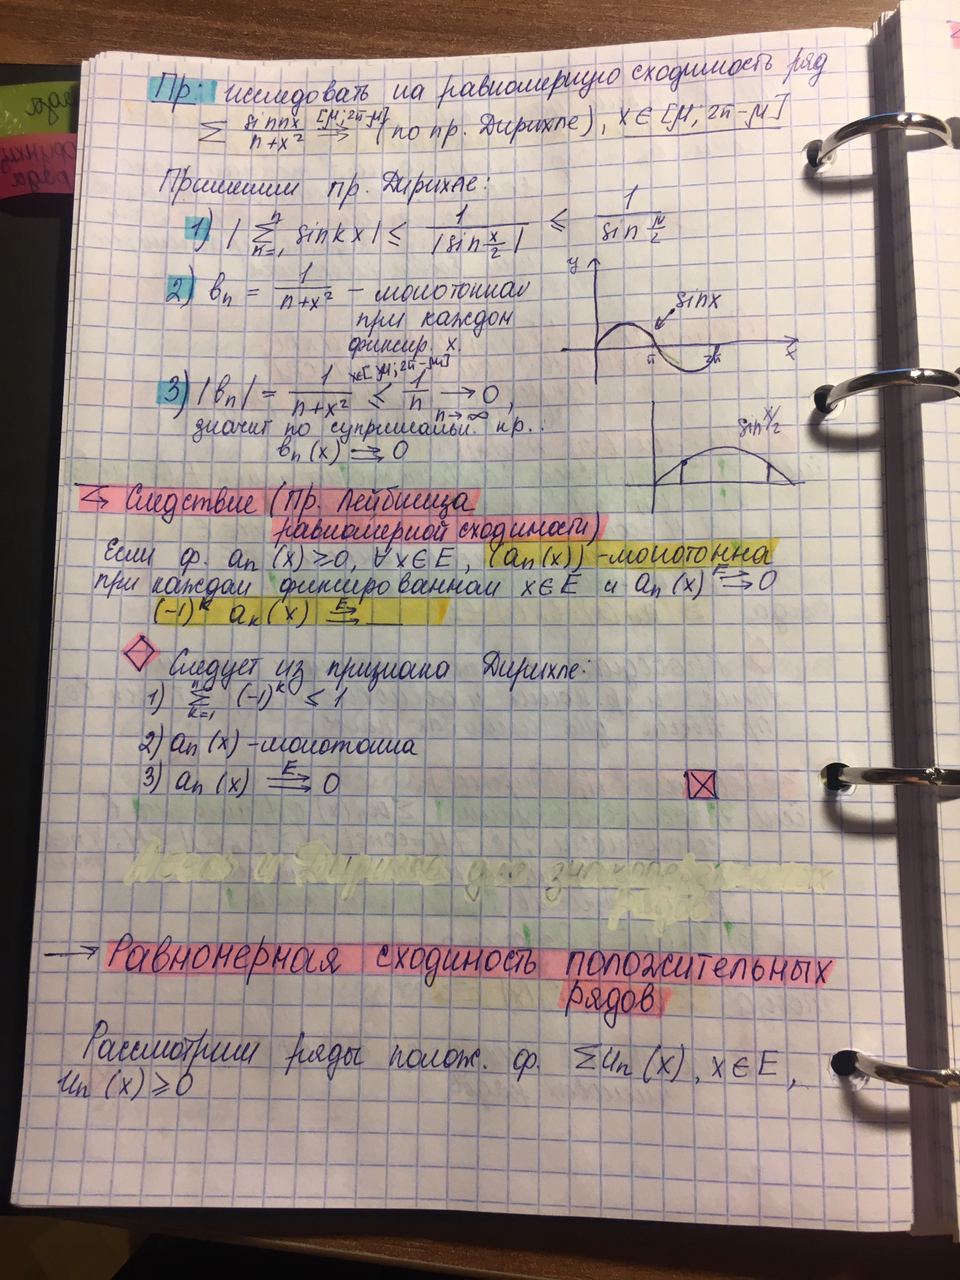 Пр: исследовать на равномерную сходимость ряд
∑ sin nx / (n+x²) ⇉ [μ; 2π-μ] (по пр. Дирихле), x ∈ [μ; 2π-μ]
Применим пр. Дирихле:
1) | ∑_{n=1}^{n} sin kx | ≤ 1/|sin x/2| ≤ 1/sin μ/2
2) bₙ = 1/(n+x²) - монотонная
при каждом
фиксир. x.
y
sin x
π
2π
x
3) |bₙ| = 1/(n+x²) ≤ 1/n → 0, x∈[μ; 2π-μ] n→∞
значит по супремальн. пр.:
bₙ(x) ⇉ 0
sin x/2
Следствие (пр. Лейбница
равномерной сходимости)
Если ф. aₙ(x) ≥ 0, ∀x∈E, (aₙ(x)) - монотонна
при каждом фиксированном x∈E и aₙ(x) ⇉ᴱ 0
(-1)ᵏ aₖ(x) ⇉ᴱ __
Следует из признака Дирихле:
1) ∑_{k=1}^{n} (-1)ᵏ ≤ 1
2) aₙ(x) - монотонна
3) aₙ(x) ⇉ᴱ 0
→ Равномерная сходимость положительных
рядов
Рассмотрим ряды полож. ф. ∑uₙ(x), x∈E,
uₙ(x) ≥ 0